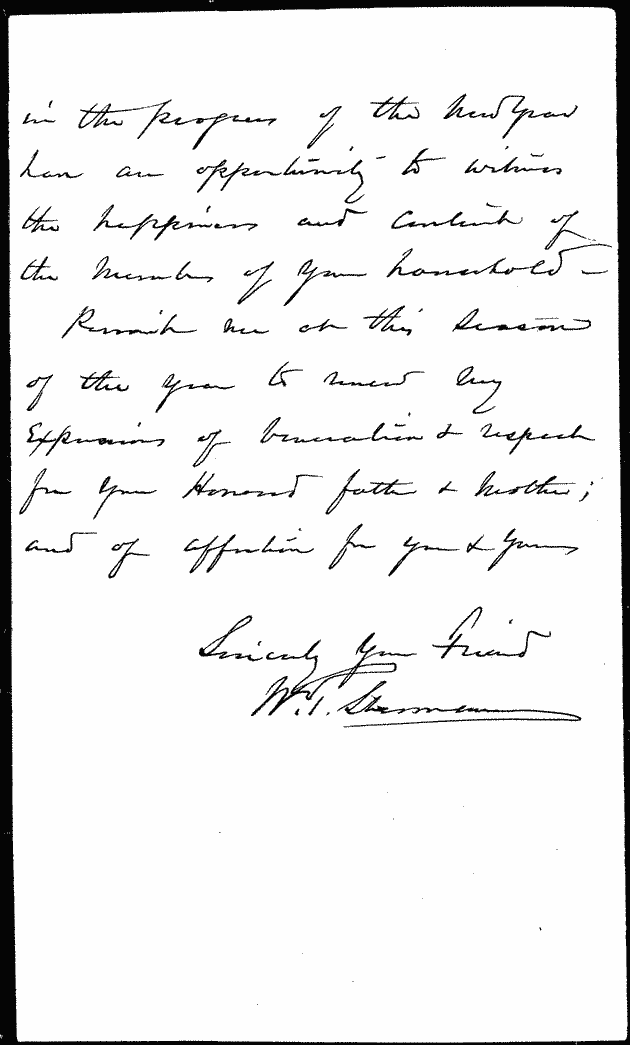 in the progress of the New Year
have an opportunity to witness
the happiness and content of
the Members of your household —
Permit me at this Season
of the year to renew my
Expressions of veneration & respect
for your Honored father & Mother;
and of affection for you & yours
Sincerely your Friend
W. T. Sherman